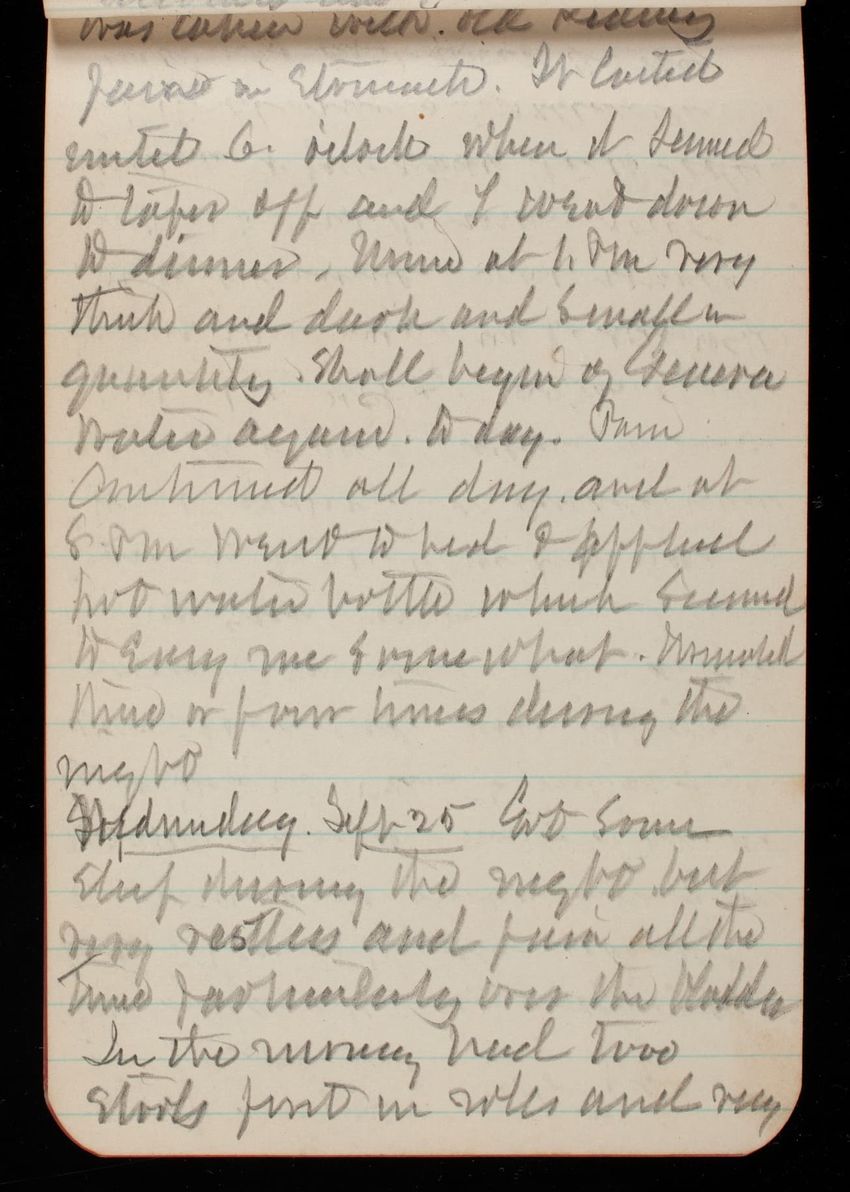 was taken with old
pains in Stomach. It lasted
until 6. oclock when it seemed
to taper off and I went down
to dinner. Urine at 1. Pm very
thick and dark and small in
quantity. Shall begin of Geneva
Water again. to day. Pain
Continued all day. and at
8. Pm went to bed & applied
hot water bottle which seemed
to Easy me somewhat.
time or four times during the
night
Wednesday. Sept 25 Got some
Sleep during the night but
very restless and pain all the
time particularly over the bladder
In the morning had two
Stools first in rolls and very